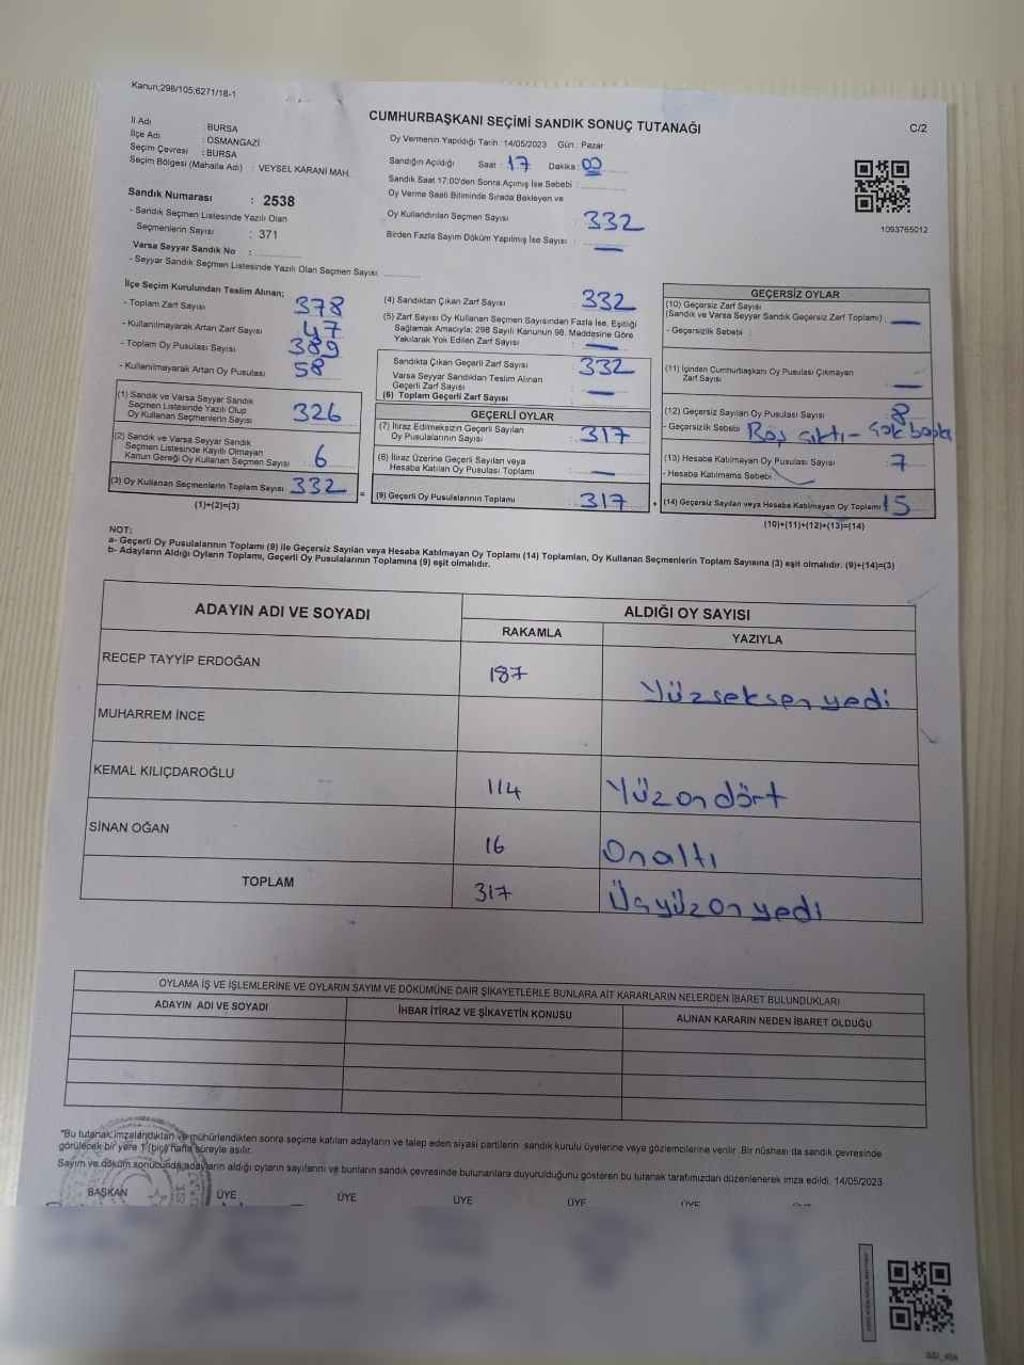 Kanun;298/105;6271/18-1
CUMHURBAŞKANI SEÇİMİ SANDIK SONUÇ TUTANAĞI
C/2
İl Adı : BURSA
İlçe Adı : OSMANGAZİ
Seçim Çevresi : BURSA
Seçim Bölgesi (Mahalle Adı) : VEYSEL KARANİ MAH.
Sandık Numarası : 2538
- Sandık Seçmen Listesinde Yazılı Olan
Seçmenlerin Sayısı : 371
Varsa Seyyar Sandık No :
- Seyyar Sandık Seçmen Listesinde Yazılı Olan Seçmen Sayısı
Oy Vermenin Yapıldığı Tarih : 14/05/2023 Gün : Pazar
Sandığın Açıldığı Saat : 17 Dakika : 00
Sandık Saat 17:00'den Sonra Açılmış İse Sebebi :
Oy Verme Saati Bitiminde Sırada Bekleyen ve
Oy Kullandırılan Seçmen Sayısı 332
Birden Fazla Sayım Döküm Yapılmış İse Sayısı : —
1093765012
İlçe Seçim Kurulundan Teslim Alınan;
- Toplam Zarf Sayısı 378
- Kullanılmayarak Artan Zarf Sayısı 47
- Toplam Oy Pusulası Sayısı 389
- Kullanılmayarak Artan Oy Pusulası 58
(1) Sandık ve Varsa Seyyar Sandık
Seçmen Listesinde Yazılı Olup
Oy Kullanan Seçmenlerin Sayısı 326
(2) Sandık ve Varsa Seyyar Sandık
Seçmen Listesinde Kayıtlı Olmayan
Kanun Gereği Oy Kullanan Seçmen Sayısı 6
(3) Oy Kullanan Seçmenlerin Toplam Sayısı 332
(1)+(2)=(3)
(4) Sandıktan Çıkan Zarf Sayısı 332
(5) Zarf Sayısı Oy Kullanan Seçmen Sayısından Fazla İse, Eşitliği
Sağlamak Amacıyla; 298 Sayılı Kanunun 98. Maddesine Göre
Yakılarak Yok Edilen Zarf Sayısı —
Sandıkta Çıkan Geçerli Zarf Sayısı 332
Varsa Seyyar Sandıktan Teslim Alınan
Geçerli Zarf Sayısı —
(6) Toplam Geçerli Zarf Sayısı
GEÇERLİ OYLAR
(7) İtiraz Edilmeksizin Geçerli Sayılan
Oy Pusulalarının Sayısı 317
(8) İtiraz Üzerine Geçerli Sayılan veya
Hesaba Katılan Oy Pusulası Toplamı —
(9) Geçerli Oy Pusulalarının Toplamı 317
GEÇERSİZ OYLAR
(10) Geçersiz Zarf Sayısı
(Sandık ve Varsa Seyyar Sandık Geçersiz Zarf Toplamı) —
- Geçersizlik Sebebi :
(11) İçinden Cumhurbaşkanı Oy Pusulası Çıkmayan
Zarf Sayısı —
(12) Geçersiz Sayılan Oy Pusulası Sayısı 8
- Geçersizlik Sebebi Boş çıktı - çok
(13) Hesaba Katılmayan Oy Pusulası Sayısı 7
- Hesaba Katılmama Sebebi
(14) Geçersiz Sayılan veya Hesaba Katılmayan Oy Toplamı 15
(10)+(11)+(12)+(13)=(14)
NOT:
a- Geçerli Oy Pusulalarının Toplamı (9) ile Geçersiz Sayılan veya Hesaba Katılmayan Oy Toplamı (14) Toplamları, Oy Kullanan Seçmenlerin Toplam Sayısına (3) eşit olmalıdır. (9)+(14)=(3)
b- Adayların Aldığı Oyların Toplamı, Geçerli Oy Pusulalarının Toplamına (9) eşit olmalıdır.
ADAYIN ADI VE SOYADI ALDIĞI OY SAYISI
RAKAMLA YAZIYLA
RECEP TAYYİP ERDOĞAN 187 Yüzseksen yedi
MUHARREM İNCE
KEMAL KILIÇDAROĞLU 114 Yüzon dört
SİNAN OĞAN 16 Onaltı
TOPLAM 317 Üçyüzon yedi
OYLAMA İŞ VE İŞLEMLERİNE VE OYLARIN SAYIM VE DÖKÜMÜNE DAİR ŞİKAYETLERLE BUNLARA AİT KARARLARIN NELERDEN İBARET BULUNDUKLARI
ADAYIN ADI VE SOYADI İHBAR İTİRAZ VE ŞİKAYETİN KONUSU ALINAN KARARIN NEDEN İBARET OLDUĞU
"Bu tutanak imzalandıktan ve mühürlendikten sonra seçime katılan adayların ve talep eden siyasi partilerin sandık kurulu üyelerine veya gözlemcilerine verilir. Bir nüshası da sandık çevresinde
görülecek bir yere 1 (bir) hafta süreyle asılır.
Sayım ve döküm sonucunda adayların aldığı oyların sayılarını ve bunların sandık çevresinde bulunanlara duyurulduğunu gösteren bu tutanak tarafımızdan düzenlenerek imza edildi. 14/05/2023
BAŞKAN ÜYE ÜYE ÜYE ÜYE ÜYE